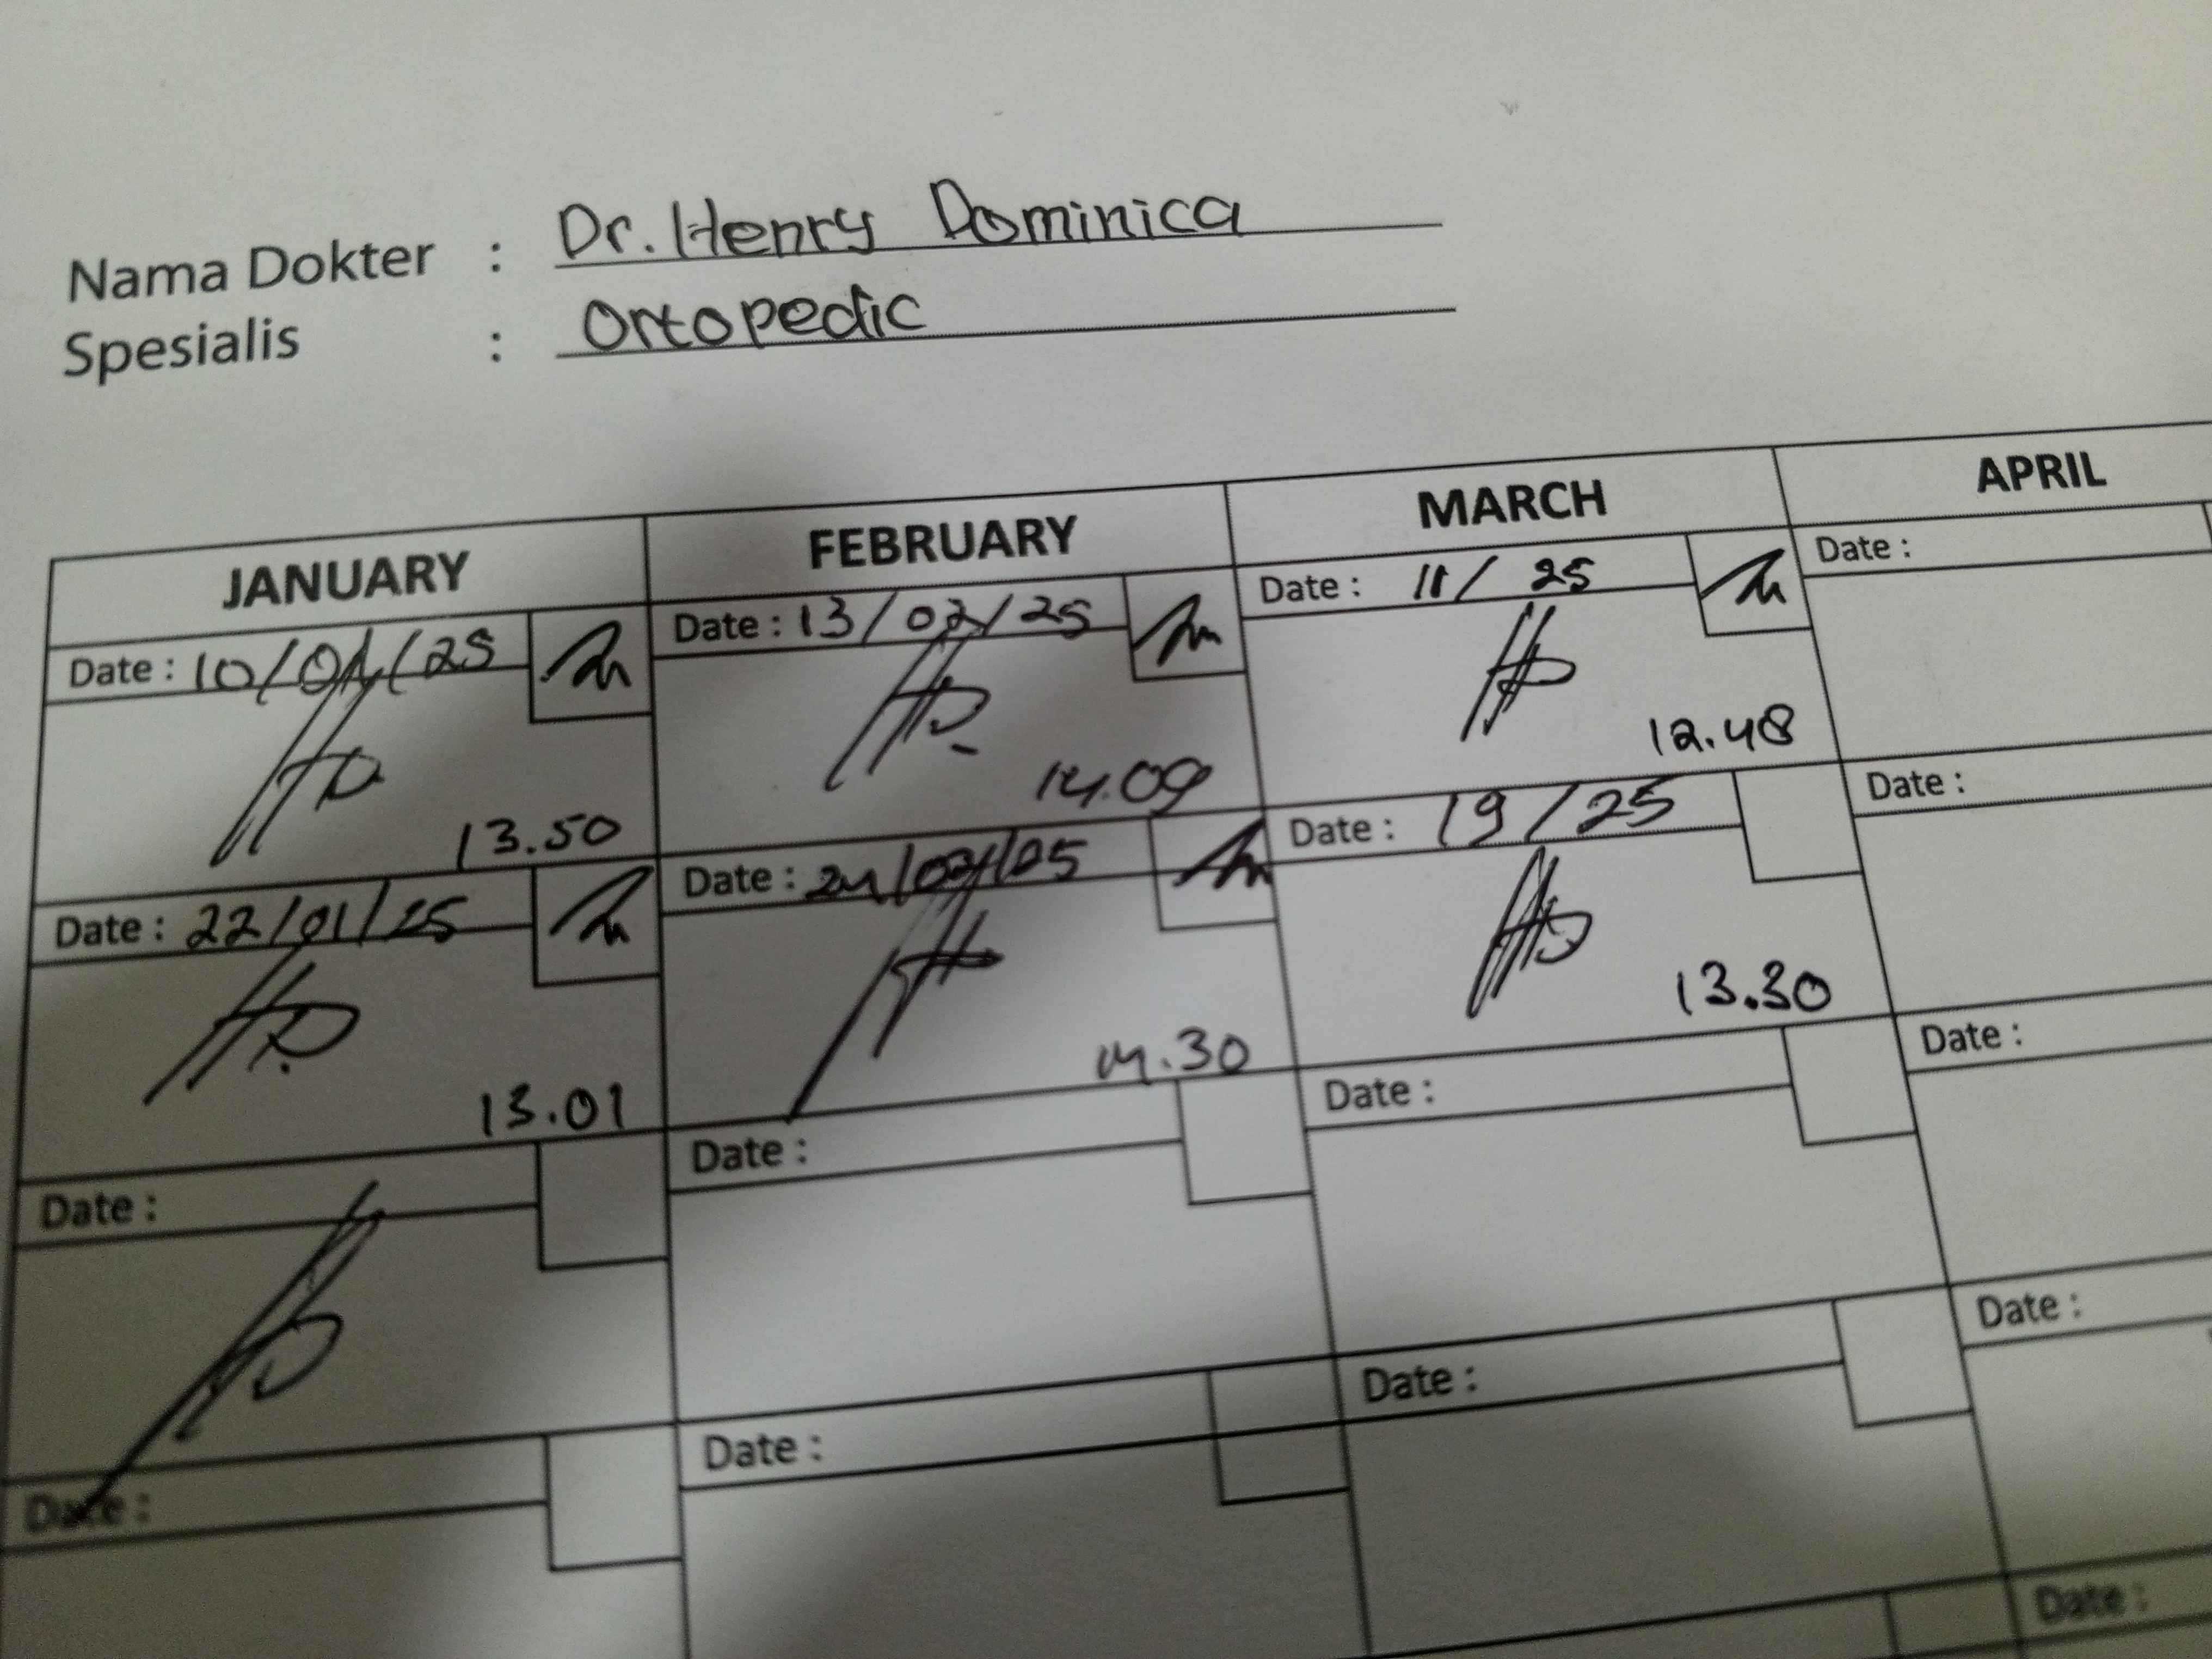 Nama Dokter : Dr. Henry Dominica
Spesialis : Ortopedic
JANUARY FEBRUARY MARCH APRIL
Date : 10/01/25 Date : 13/02/25 Date : 11/ 25 Date :
13.50 14.09 12.48
Date : 22/01/25 Date : 24/02/25 Date : 19/25 Date :
13.01 14.30 13.30
Date : Date : Date : Date :
Date : Date : Date : Date :
Date :